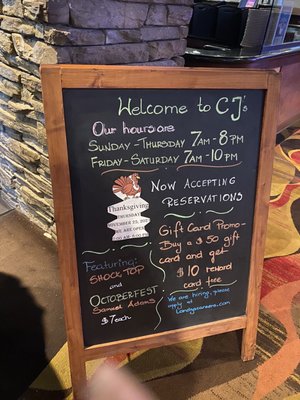 Welcome to CJ's
Our hours are
Sunday - Thursday 7am - 8pm
Friday - Saturday 7am - 10pm
Now Accepting
Reservations
Thanksgiving
THURSDAY
NOVEMBER 25, 20
WE ARE OPEN
7:00 AM-8:00 PM
Gift Card Promo -
Buy a $50 gift
card and get
$10 reward
card free
Featuring:
Shock Top
and
Octoberfest
Samuel Adams
$7 each
We are hiring, please
apply at
Landyscareers.com